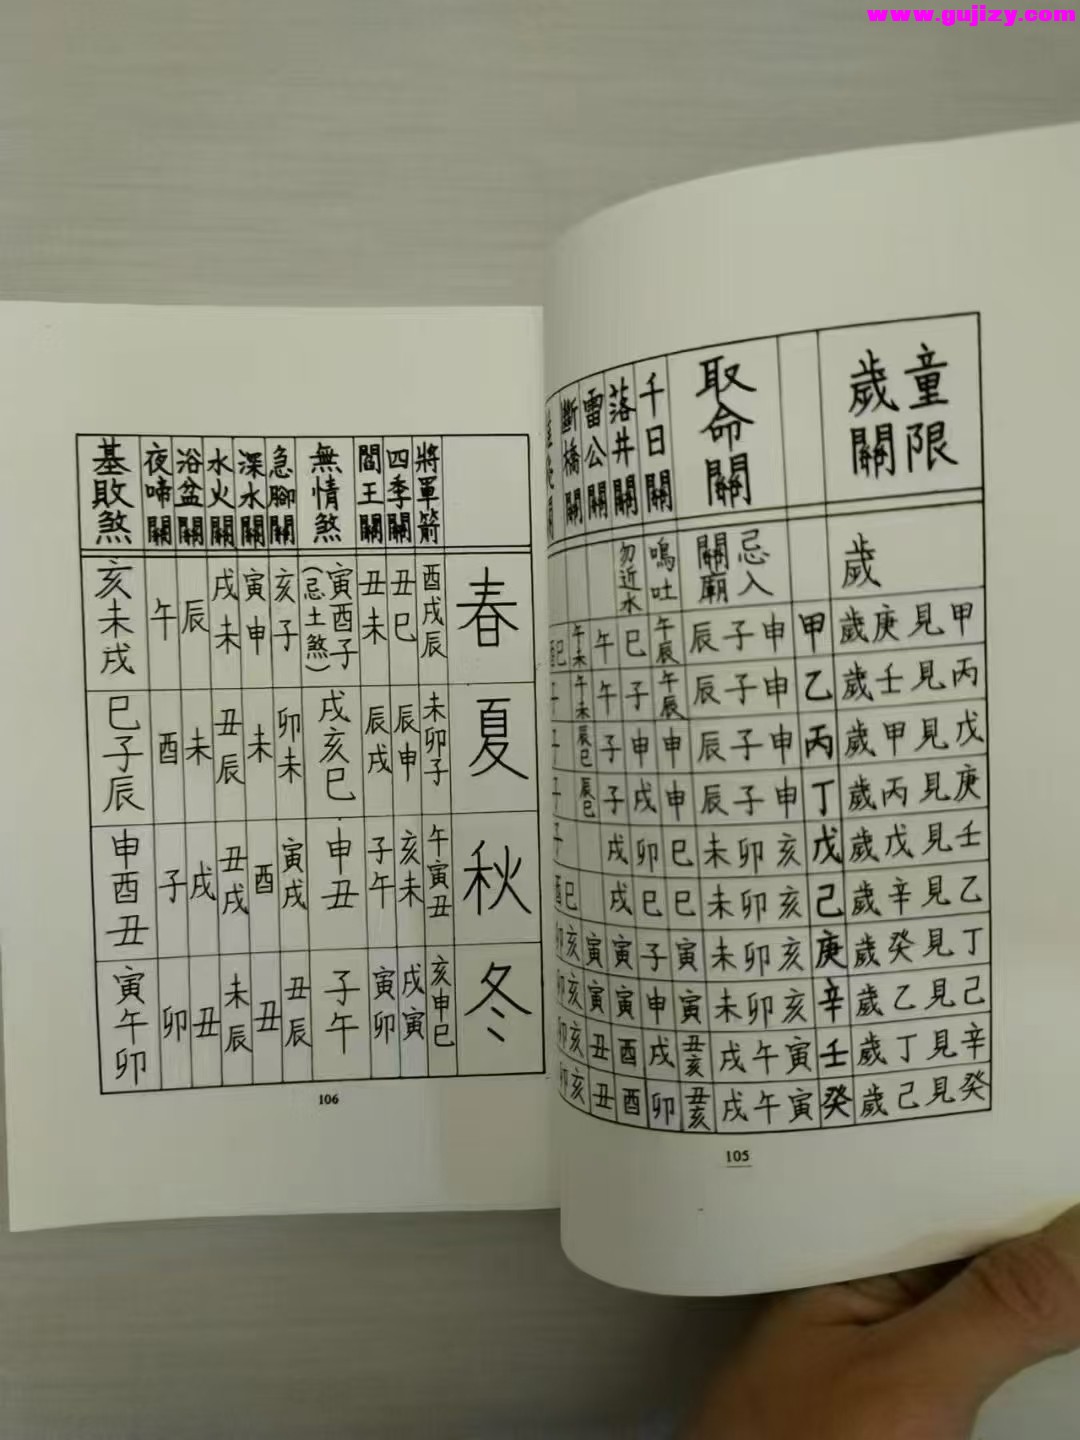 www.gujizy.com
童限歲關 取命關 千日關 落井關 雷公關 斷橋關
歲 忌入關廟 嗚吐 勿近水
甲見庚歲 甲 申子辰 午辰 巳 午 午未 巳酉
丙見壬歲 乙 申子辰 午辰 子 午 午未 子
戊見甲歲 丙 申子辰 申 申 子 辰巳 子
庚見丙歲 丁 申子辰 申 戌 子 辰巳 子
壬見戊歲 戊 亥卯未 巳 卯 戌 子
乙見辛歲 己 亥卯未 巳 巳 戌 巳酉
丁見癸歲 庚 亥卯未 寅 子 寅 寅 亥卯
己見乙歲 辛 亥卯未 寅 申 寅 寅 亥卯
辛見丁歲 壬 寅午戌 丑亥 戌 酉 丑 亥卯
癸見己歲 癸 寅午戌 丑亥 卯 酉 丑 亥卯
105
將軍箭 四季關 閻王關 無情煞 急腳關 深水關 水火關 浴盆關 夜啼關 基敗煞
春 酉戌辰 丑巳 丑未 寅酉子(忌土煞) 亥子 寅申 戌未 辰 午 亥未戌
夏 未卯子 辰申 辰戌 戌亥巳 卯未 未 丑辰 未 酉 巳子辰
秋 午寅丑 亥未 子午 申丑 寅戌 酉 丑戌 戌 子 申酉丑
冬 亥申巳 戌寅 寅卯 子午 丑辰 丑 未辰 丑 卯 寅午卯
106